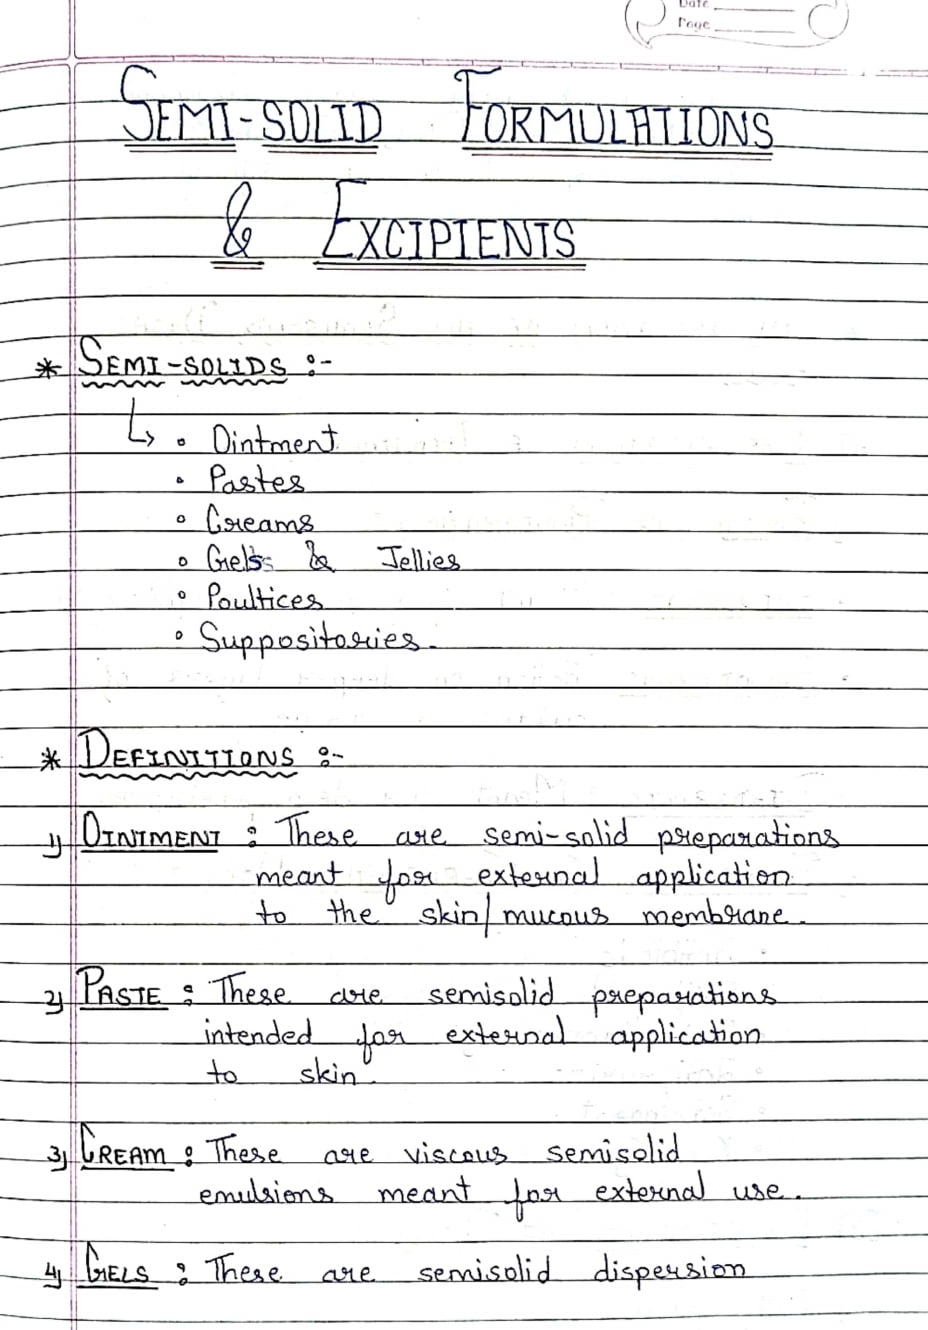 Date
Page
SEMI-SOLID FORMULATIONS
& EXCIPIENTS
* SEMI-SOLIDS :-
↳ • Ointment
• Pastes
• Creams
• Gels & Jellies
• Poultices
• Suppositories.
* DEFINITIONS :-
1) OINTMENT : These are semi-solid preparations
meant for external application
to the skin/mucous membrane.
2) PASTE : These are semisolid preparations
intended for external application
to skin.
3) CREAM : These are viscous semisolid
emulsions meant for external use.
4) GELS : These are semisolid dispersion